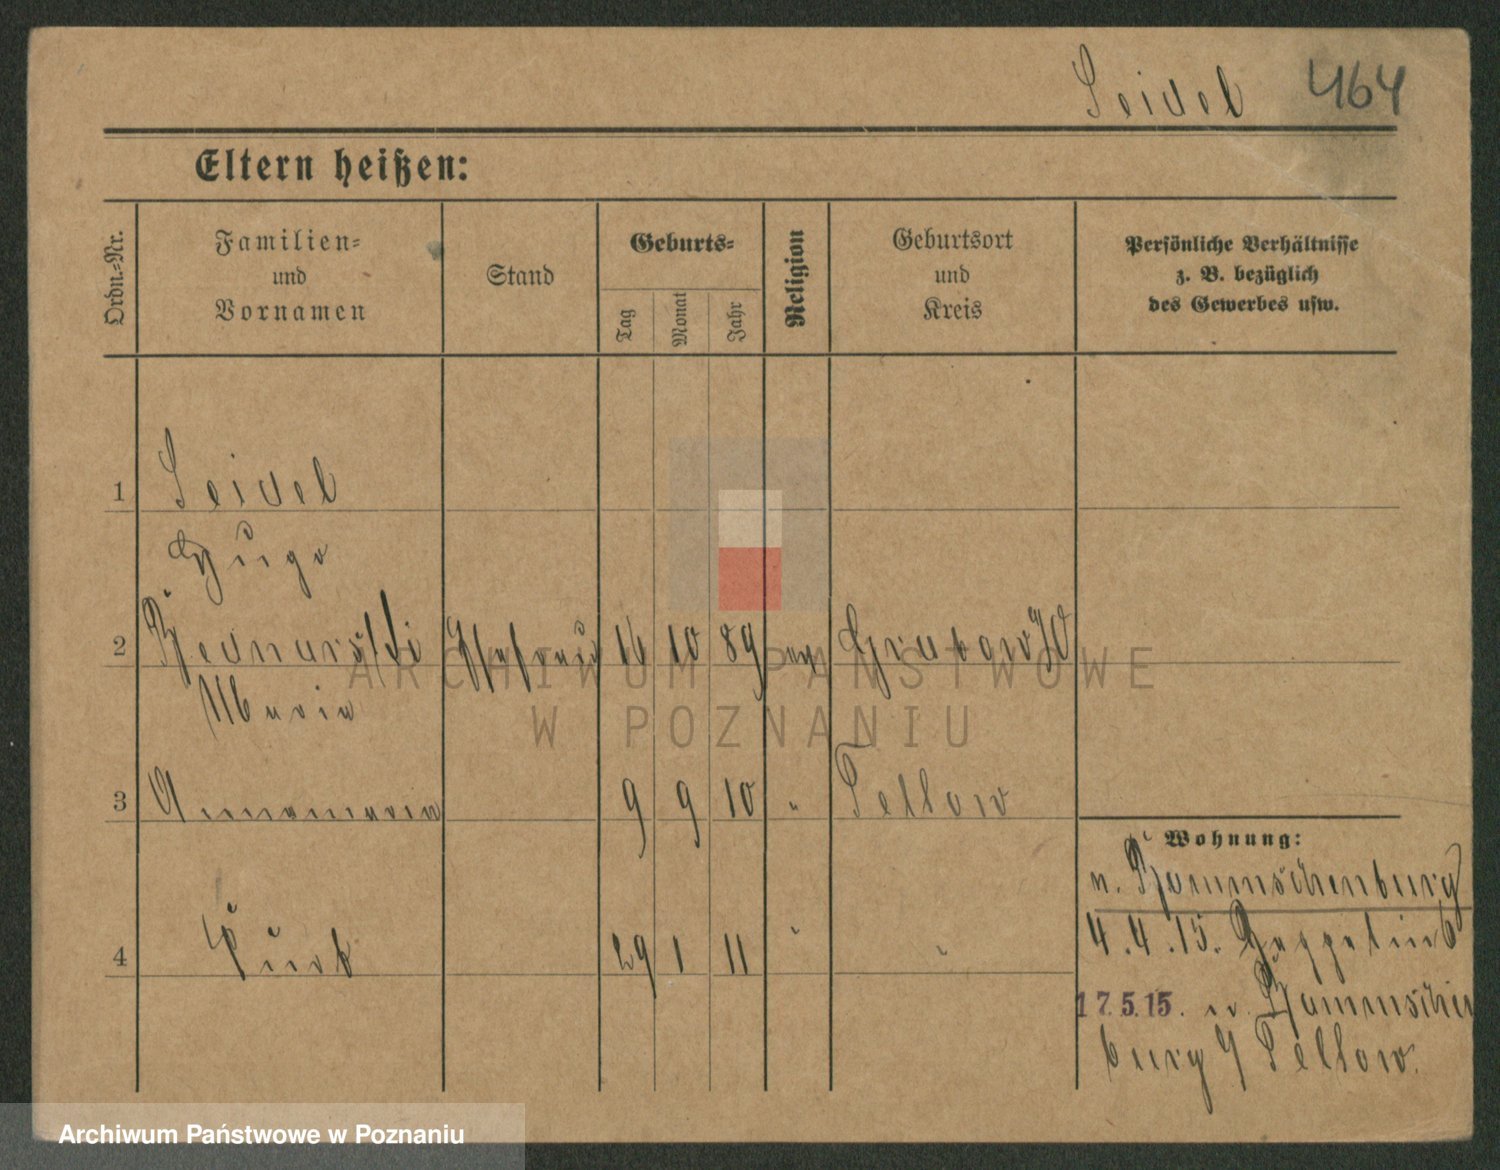 Seidel 464
Eltern heißen:
Ordn.-Nr.
Familien-
und
Vornamen
Stand
Geburts-
Tag
Monat
Jahr
Religion
Geburtsort
und
Kreis
Persönliche Verhältnisse
z. B. bezüglich
des Gewerbes usw.
1 Seidel
Hugo
2 Bednarski Ehefrau 16 10 89 Grabow
Maria
3 Annamaria 9 9 10 " Teltow
Wohnung:
4 Kurt 29 1 11 " "
4.4.15.
17.5.15. n.
burg Teltow.
ARCHIWUM PAŃSTWOWE
W POZNANIU
Archiwum Państwowe w Poznaniu